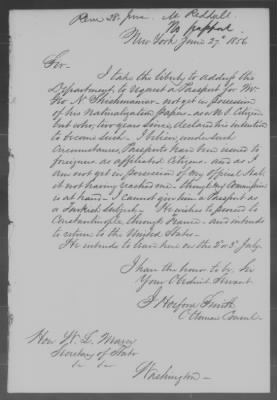 Recd 28 June. Mr Reddall.
No passport
New York June 27th 1856
Sir.
I take the liberty to address the
Department, to request a Passport for Mr
N. Shishmanian. not yet in possession
of his Naturalization papers. as a U. S. citizen
but who, two years since, declared his intention
to become such. I believe, under such
circumstances, Passports have been issued to
foreigners, as affiliated Citizens. and as I
am not yet in possession of my official Seal,
it not having reached me. though my Commission
is at hand. I cannot give him a Passport as
a Turkish Subject. He wishes to proceed to
Constantinople, through France. and intends
to return to the United States.
He intends to leave here on the 2 or 3 July.
I have the honor to be, Sir
Your Obedient Servant
J Hosford Smith
Ottoman Consul.
Hon W. L. Marcy
Secretary of State
Washington